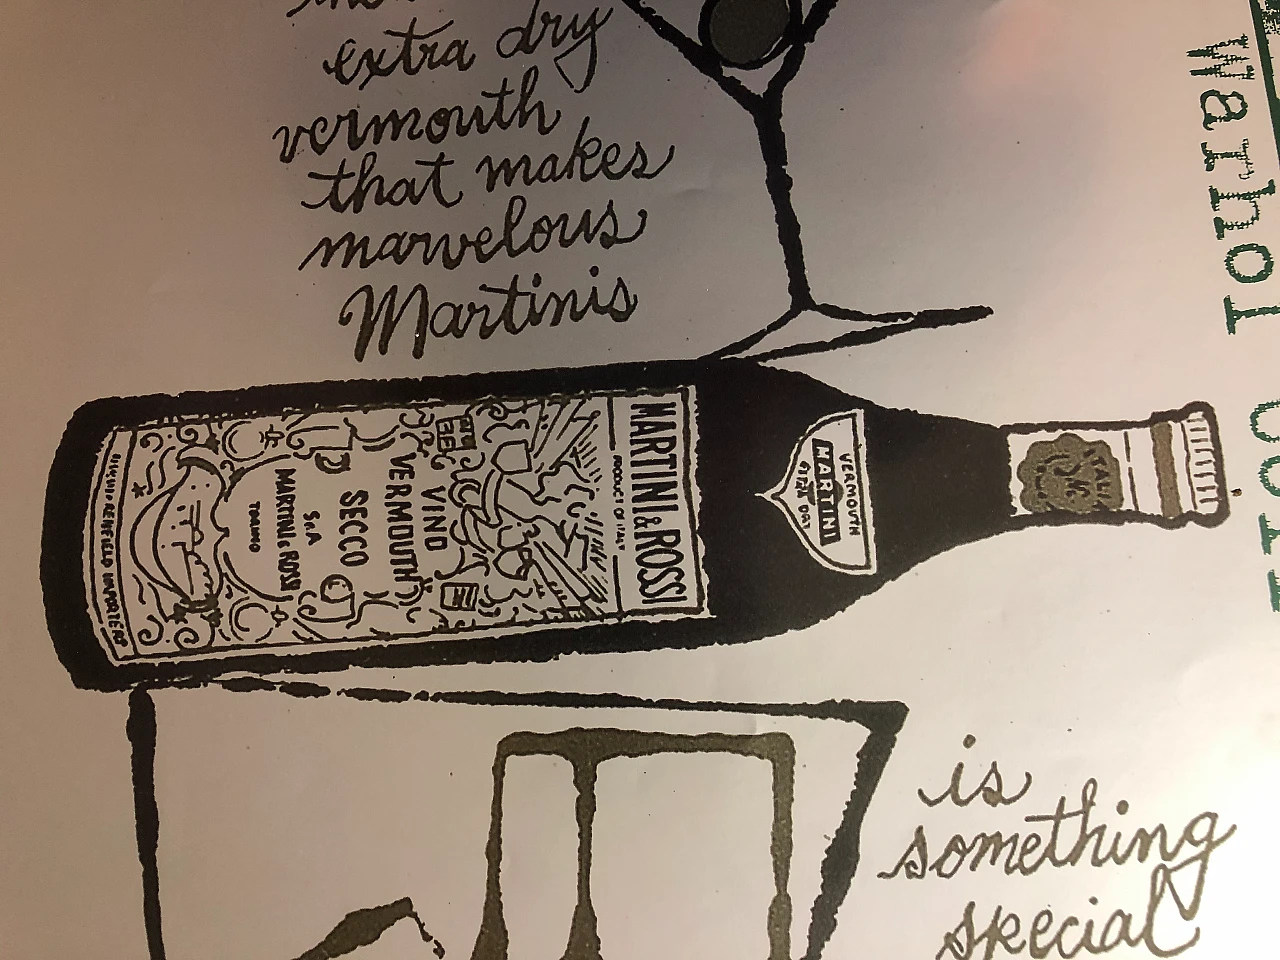 extra dry
vermouth
that makes
marvelous
Martinis
MARTINI & ROSSI
PRODUCT OF ITALY
VINO
VERMOUTH
SECCO
S.p.A
MARTINI & ROSSI
TORINO
VERMOUTH
MARTINI
EXTRA DRY
is
something
special
Warhol